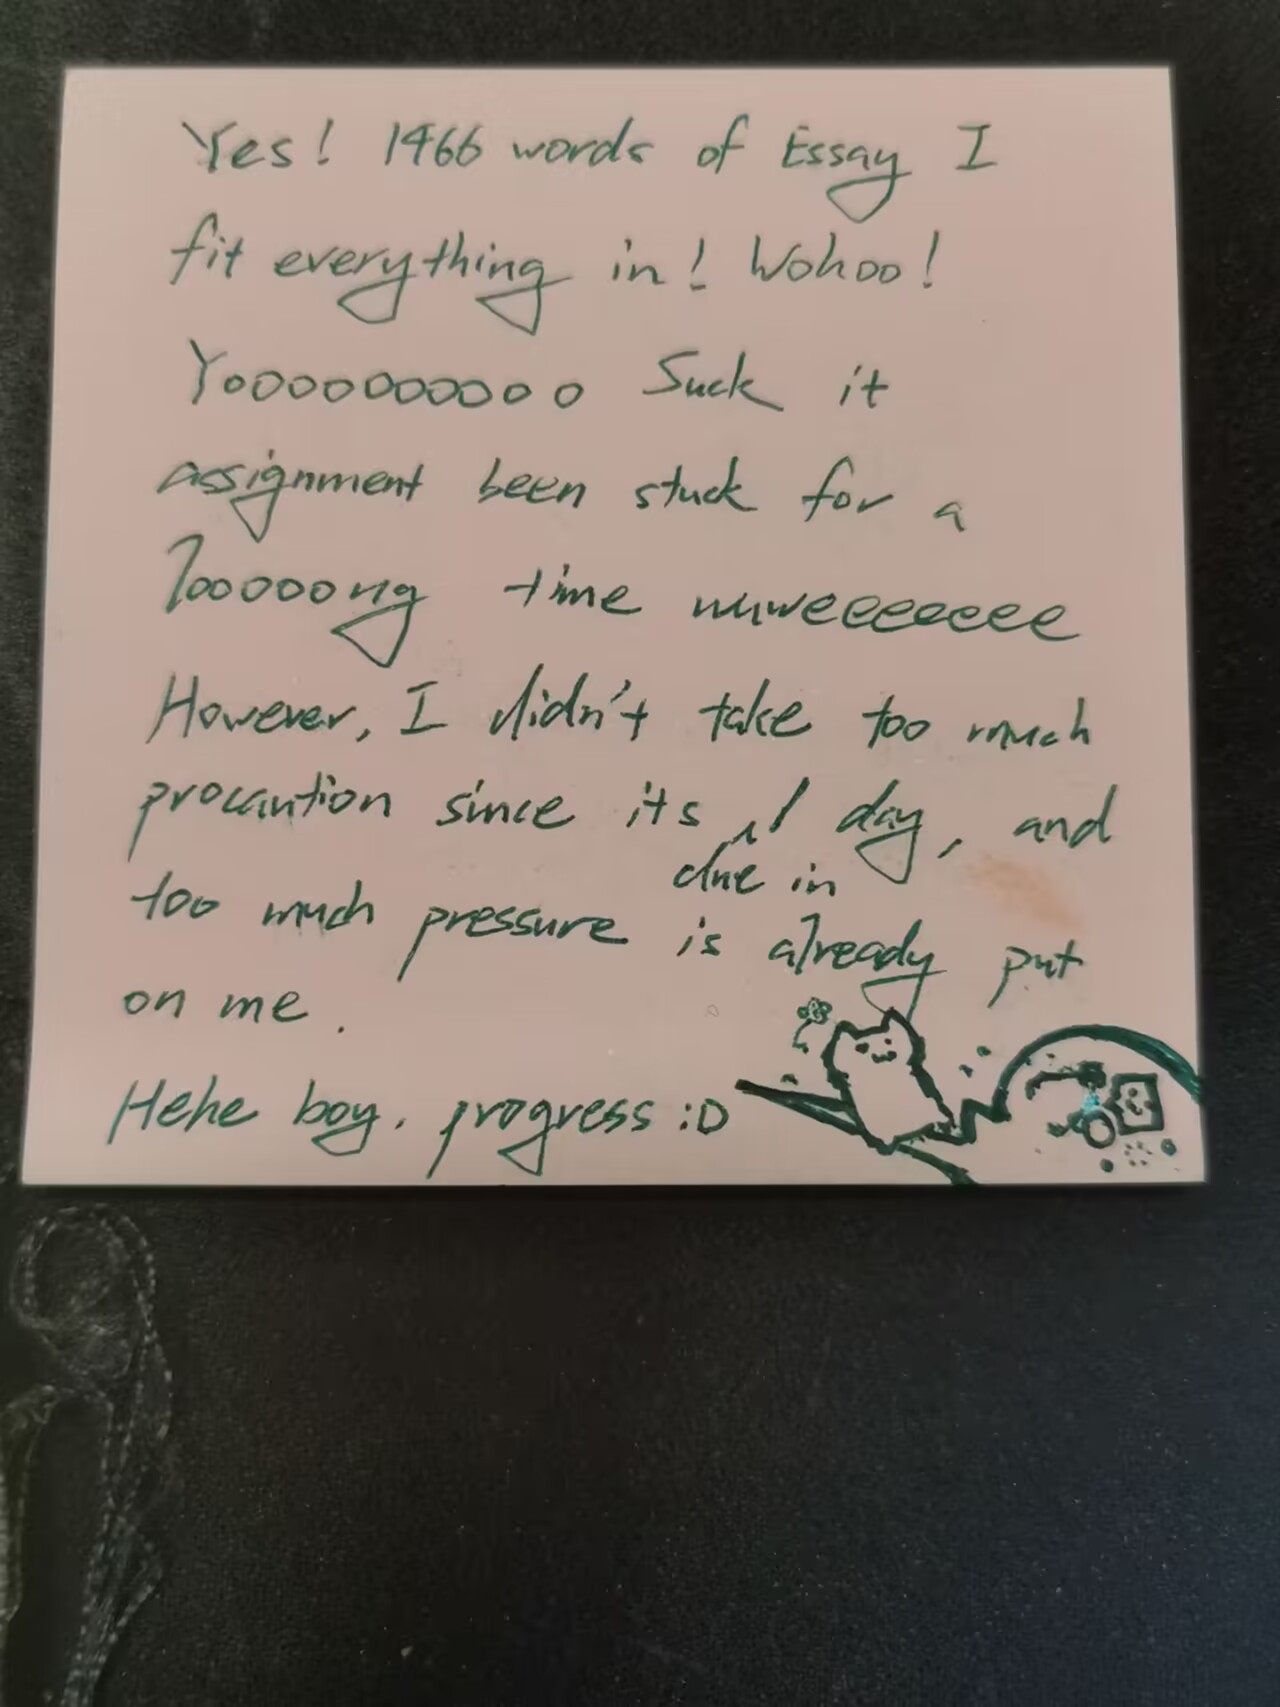 Yes! 1466 words of Essay I
fit everything in! Wohoo!
Yoooooooooo Suck it
assignment been stuck for a
looooong time nuweeeeeeee
However, I didn't take too much
procaution since its due in 1 day, and
too much pressure is already put
on me.
Hehe boy. progress :D